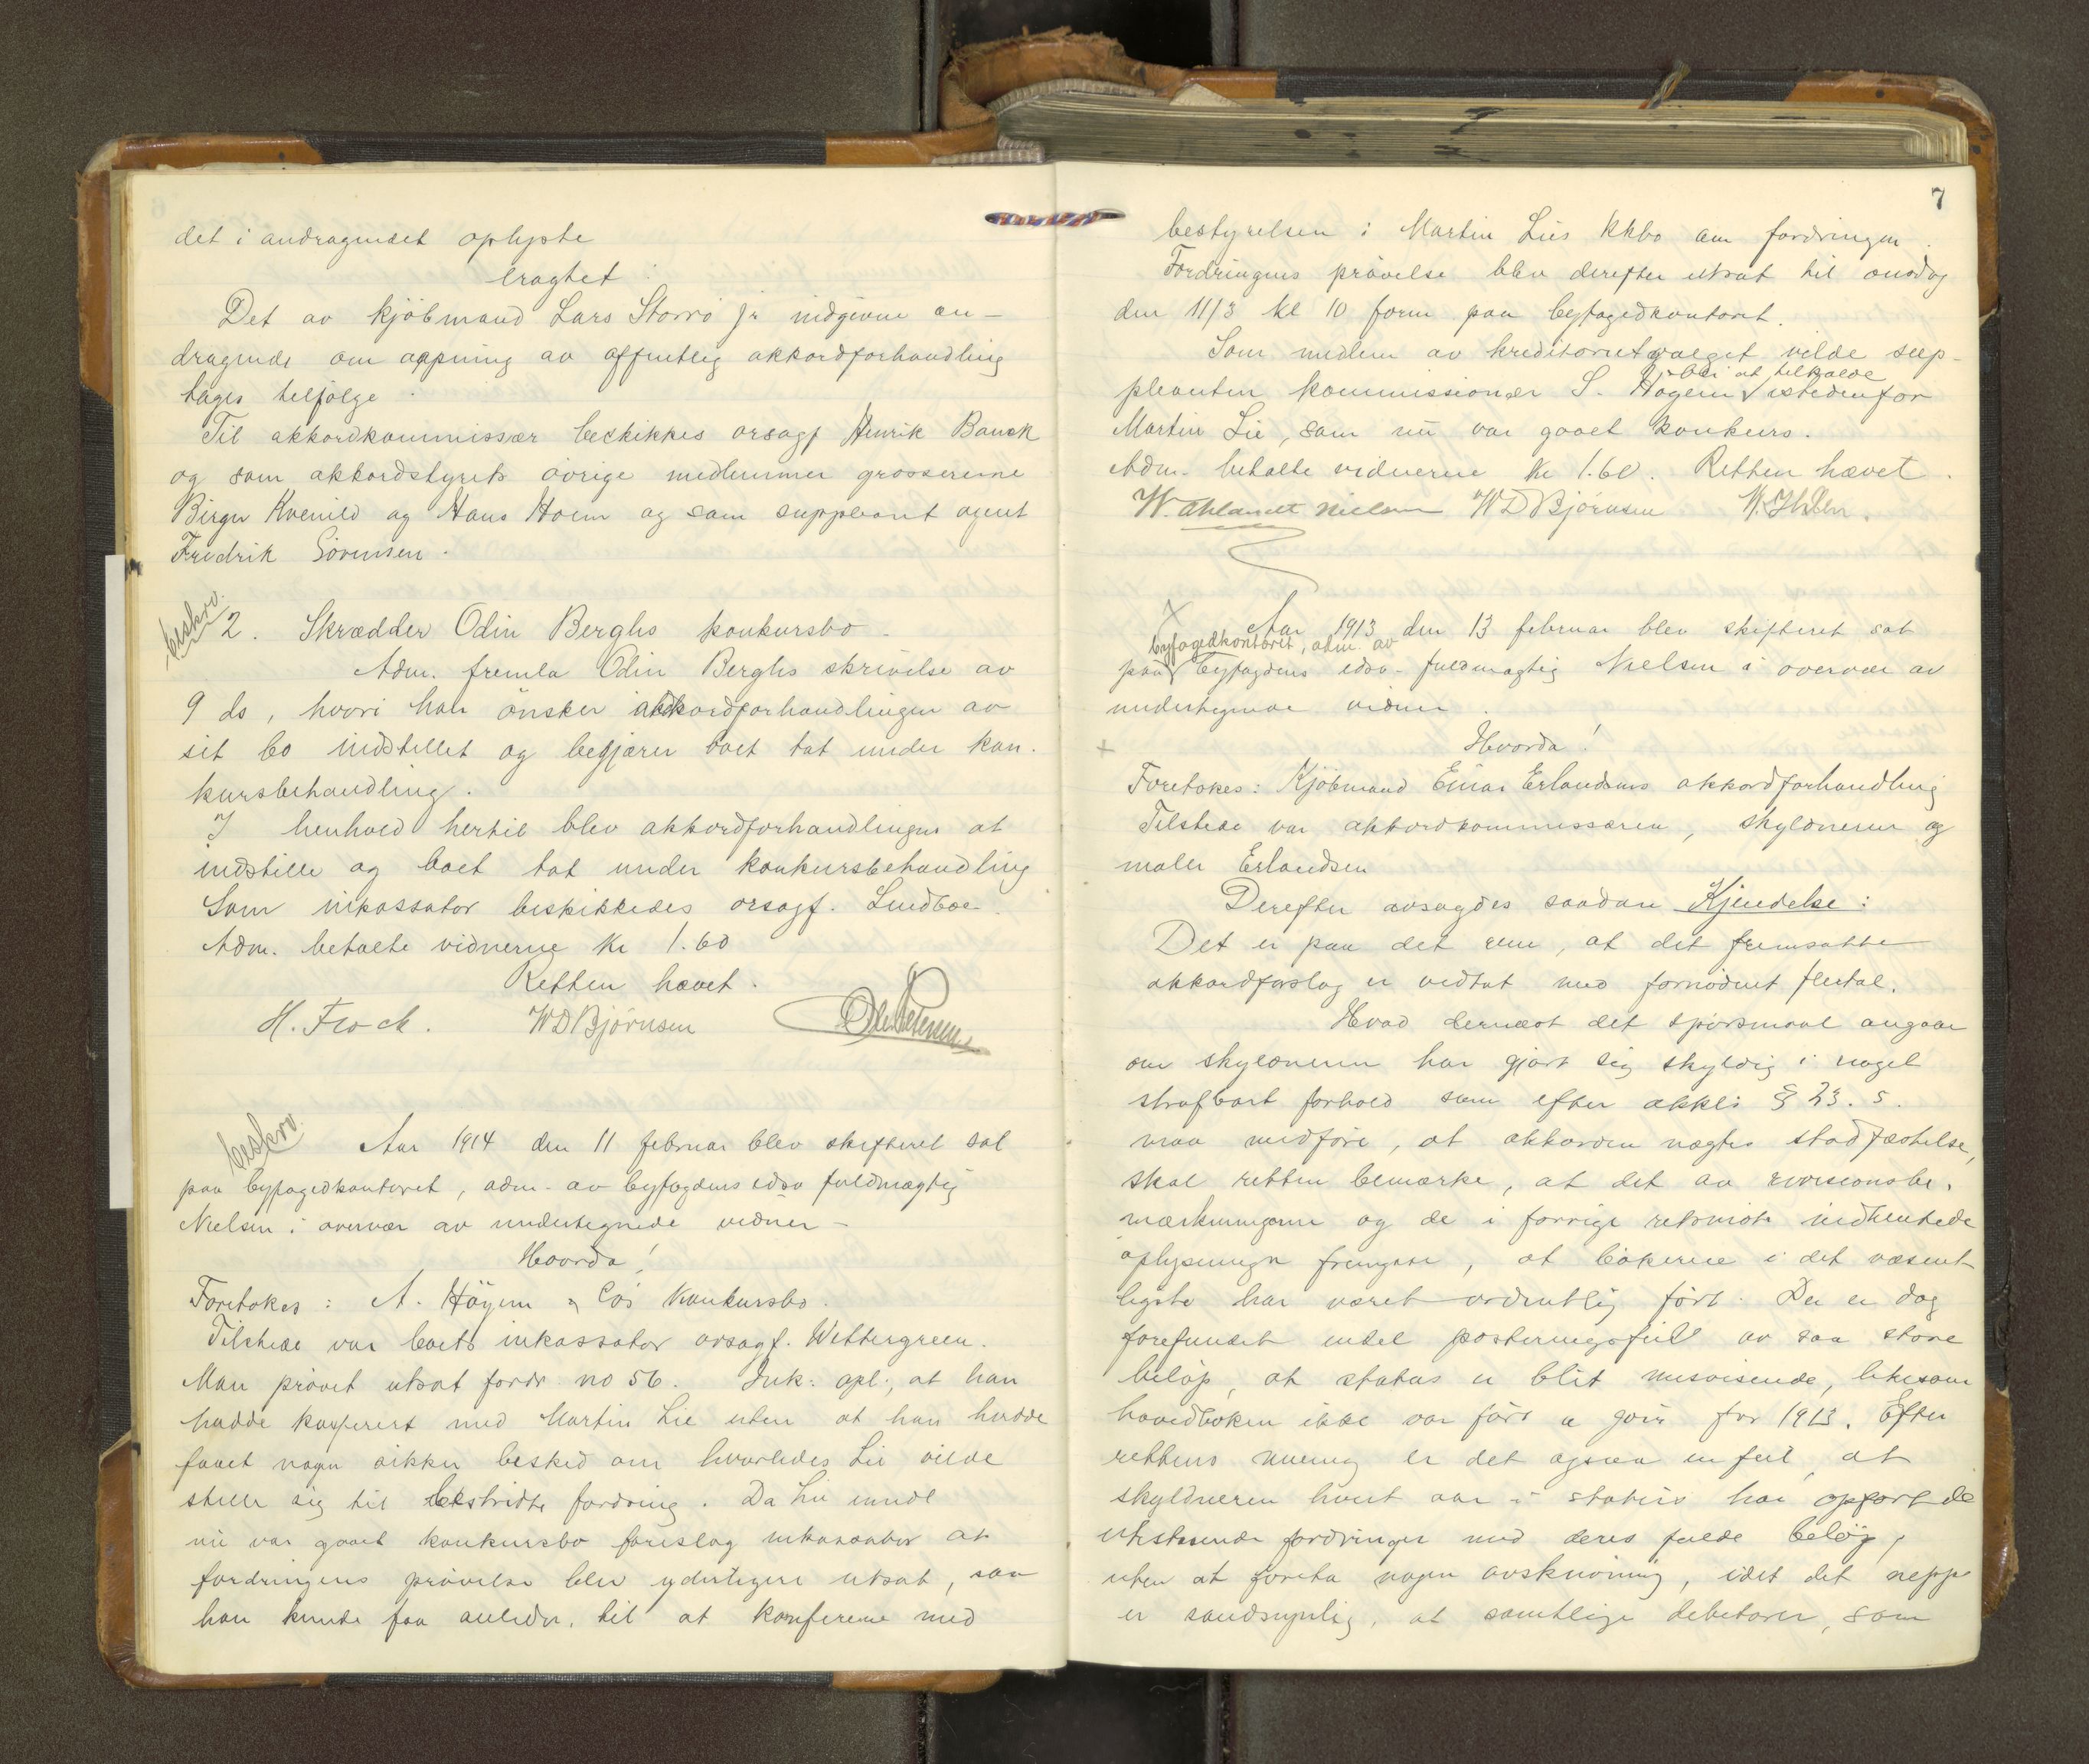 det i andragendet oplyste
eragtet:
Det av kjöbmand Lars Storrö jr indgivne an-
dragende om aapning av offentlig akkordforhandling
tages tilfölge.
Til akkordkommissær beskikkes orsagf Henrik Bauck
og som akkordstyrets övrige medlemmer grossererne
Birger Kvenild og Hans Hoem og som suppleant agent
Fredrik Sörensen.
beskrv.
2. Skrædder Odin Berghs konkursbo.
Adm. fremla Odin Berghs skrivelse av
9 ds, hvori han önsker akkordforhandlingen av
sit bo indstillet og begjærer boet tat under kon-
kursbehandling.
I henhold hertil blev akkordforhandlingen at
indstille og boet tat under konkursbehandling
Som inkassator beskikkedes orsagf. Lindboe.
Adm. betalte vidnerne Kr 1.60
Retten hævet.
H. Floch. WDBjörnsen Ole Petersen
beskrv.
Aar 1914 den 11 februar blev skifteret sat
paa byfogedkontoret, adm. av byfogdens edsv fuldmægtig
Nielsen i overvær av undertegnede vidner -
Hvorda!
Foretokes: A. Höyem & Cos konkursbo.
Tilstede var boets inkassator orsagf. Wettergreen.
Man prövet utsat fordr no 56. Ink. opl., at han
hadde konferert med Martin Lie uten at han hadde
faaet nogen sikker besked om hvorledes Lie vilde
stille sig til bestridte fordring. Da Lie imidl
nu var gaaet konkursbo foreslog inkassator at
fordringens prövelse blev yderligere utsat, saa
han kunde faa anledn. til at konferere med
7
bestyrelsen i Martin Lies kkbo om fordringen.
Fordringens prövelse blev derefter utsat til onsdag
den 11/3 kl 10 form paa byfogedkontoret.
Som medlem av kreditorutvalget vilde sup-
bli at tilkalde
pleanten kommissionær S. Hogem istedenfor
Martin Lie, som nu var gaaet konkurs.
Adm. betalte vidnerne Kr 1.60. Retten hævet.
W. Ahlandt Nielsen WDBjörnsen
X
Aar 1913 den 13 februar blev skifteret sat
byfogedkontoret, adm. av
paa byfogdens edsv. fuldmægtig Nielsen i overvær av
undertegnede vidner.
+
Hvorda!
Foretokes: Kjöbmand Einar Erlandsens akkordforhandling
Tilstede var akkordkommissæren, skyldneren og
maler Erlandsen
Derefter avsagdes saadan Kjendelse:
Det er paa det rene, at det fremsatte
akkordforslag er vedtat med fornödent flertal.
Hvad dernæst det spörsmaal angaar
om skyldneren har gjort sig skyldig i noget
strafbart forhold som efter akkls § 23. 5.
maa medföre, at akkorden nægtes stadfæstelse,
skal retten bemærke, at det av revisionsbe-
mærkningerne og de i forrige retsmöte indhentede
oplysninger fremgaar, at bökerne i det væsent-
ligste har været ordentlig fört. Der er dog
forefundet endel posteringsfeil av saa store
belöp, at status er blit misvisende, likesom
hovedboken ikke var fört a jour for 1913. Efter
rettens mening er det ogsaa en feil, at
skyldneren hvert aar i status har opfört de
utestaaende fordringer med deres fulde belöp,
uten at foreta nogen avskrivning, idet det neppe
er sandsynlig, at samtlige debitorer, som